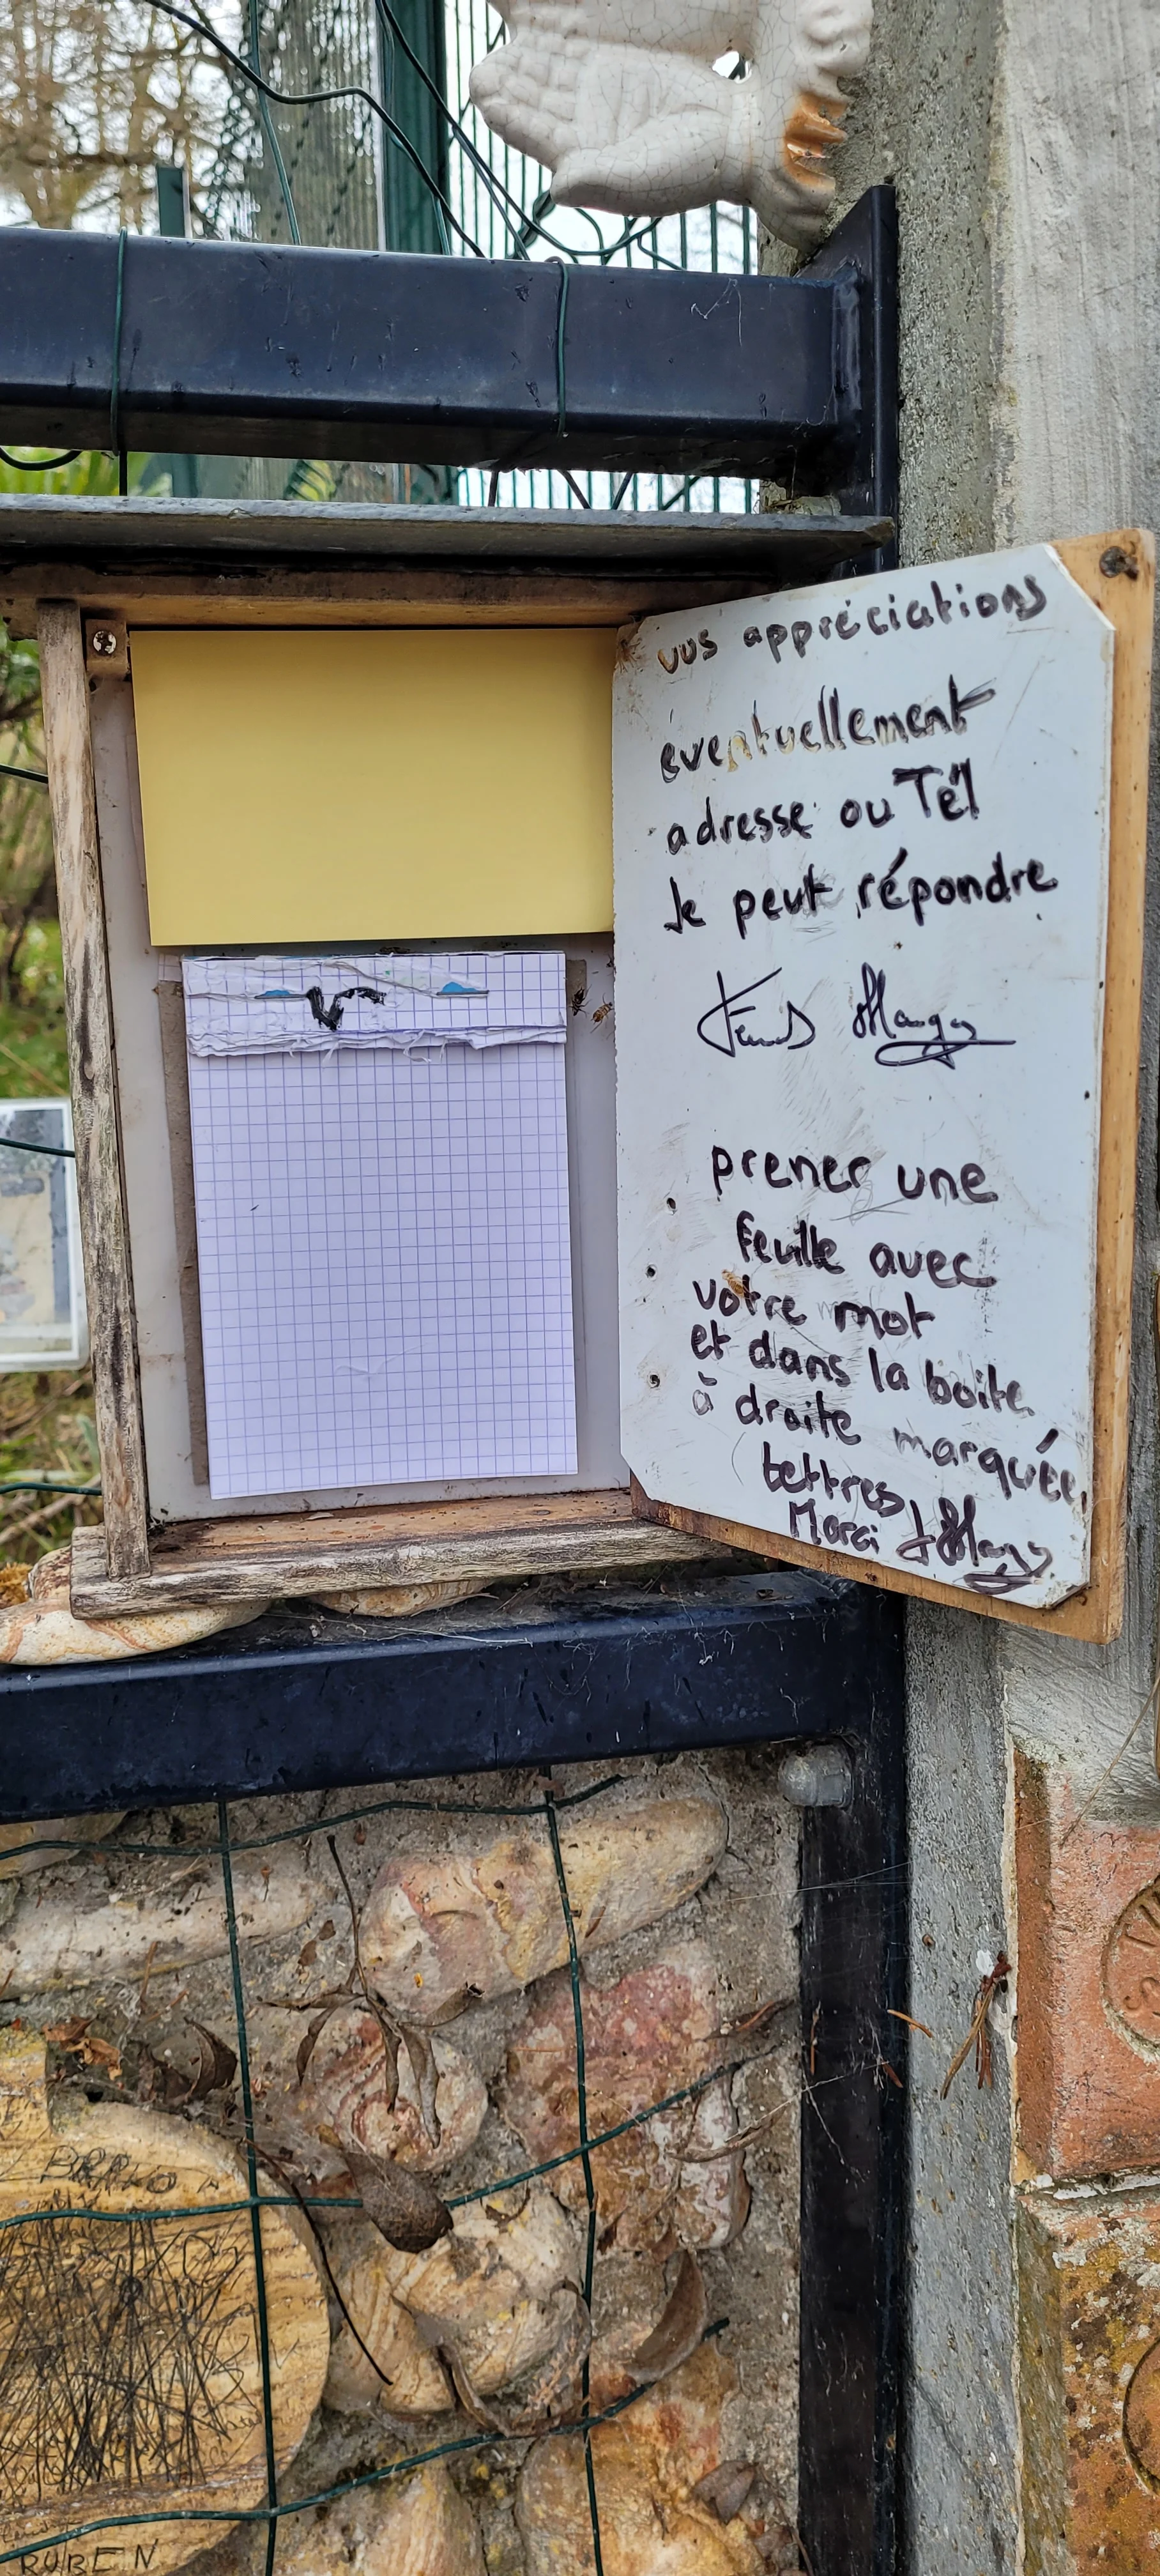 vos appréciations
éventuellement
adresse ou Tél
Je peut répondre
prener une
feuille avec
votre mot
et dans la boite
à droite marquée
lettres
Merci
RUBEN